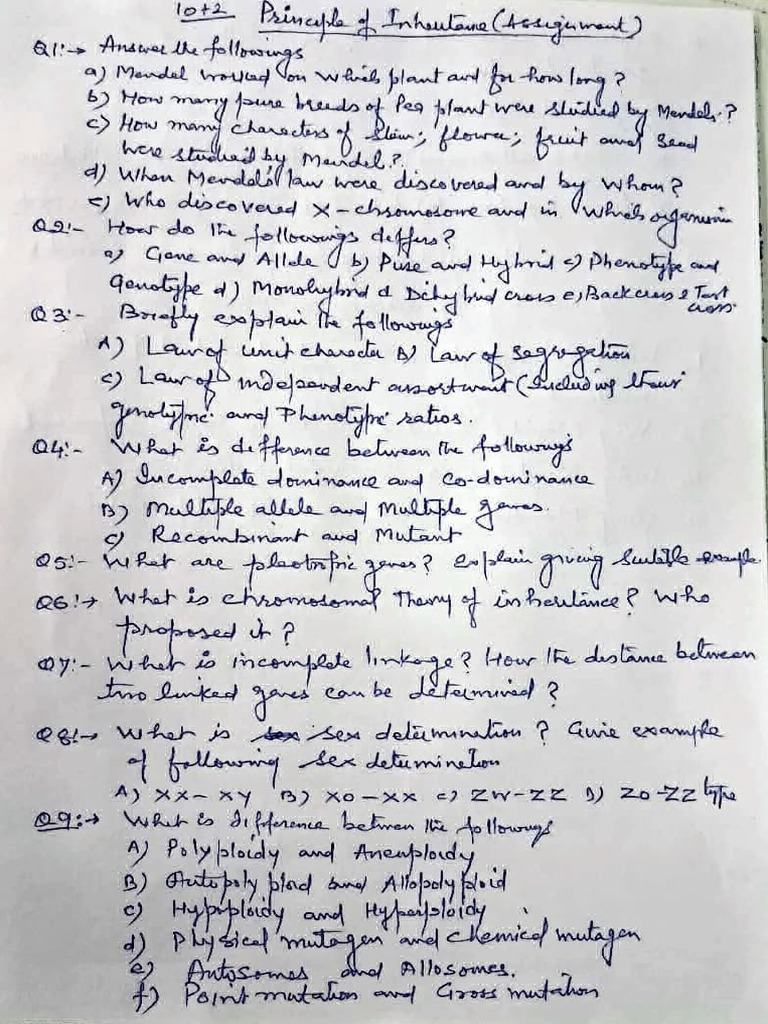 10+2 Principle of Inheritance (Assignment)
Q1:→ Answer the followings
a) Mendel worked on which plant and for how long?
b) How many pure breeds of Pea plant were studied by Mendels.?
c) How many characters of Stem; flower; fruit and Seed
were studied by Mendel?
d) When Mendel's law were discovered and by Whom?
e) Who discovered X-chromosome and in which organism
Q2:- How do the followings differs?
a) Gene and Allele b) Pure and Hybrid c) Phenotype and
Genotype d) Monohybrid & Dihybrid cross e) Back cross & Test
cross.
Q3:- Briefly explain the followings
A) Law of unit character B) Law of segregation
C) Law of independent assortment (Including their
genotypic and Phenotypic ratios.
Q4:- What is difference between the followings
A) Incomplete dominance and co-dominance
B) Multiple allele and Multiple genes.
C) Recombinant and Mutant
Q5:- What are pleotrofic genes? Explain giving Suitable example.
Q6:→ What is chromosomal Theory of inheritance? Who
proposed it?
Q7:- What is incomplete linkage? How the distance between
two linked genes can be determined?
Q8:→ What is sex determination? Give example
of following sex determination
A) XX-XY B) XO-XX C) ZW-ZZ D) ZO-ZZ type
Q9:→ What is difference between the followings
A) Polyploidy and Aneuploidy
B) Autopolyploid and Allopolyploid
C) Hypoploidy and Hyperploidy
d) Physical mutagen and chemical mutagen
e) Autosomes and Allosomes.
f) Point mutation and Gross mutation